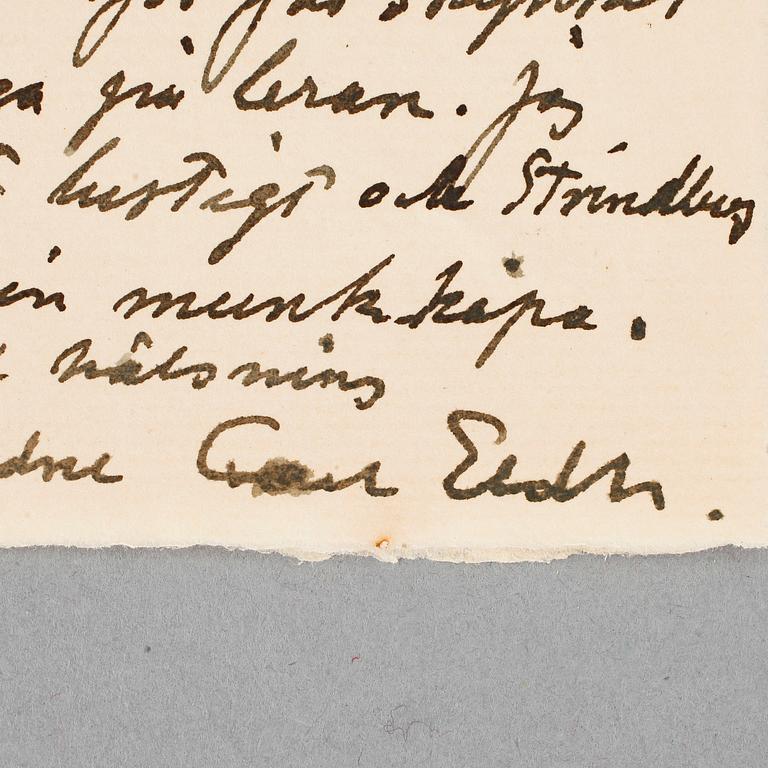 för
på leran. Jag
lustigt och Strindberg
in munkkåpa.
hälsning
Carl Eldh.